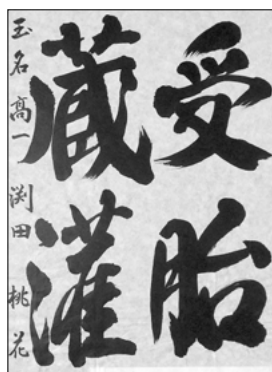 受胎
蔵灌
玉名高一 渕田桃花